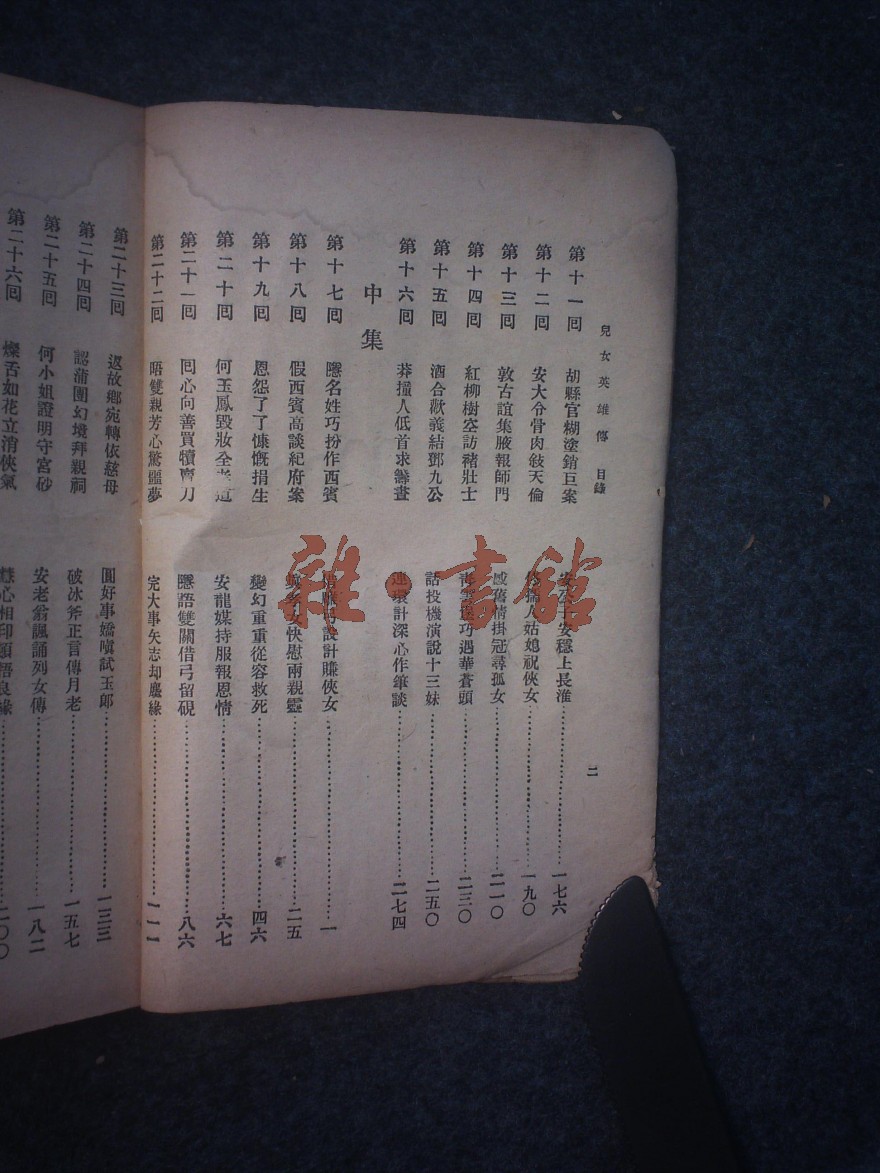 兒女英雄傳 目錄
二
第十一回 胡縣官糊塗銷巨案 安公子安穩上長淮 一七六
第十二回 安大令骨肉敍天倫 人姑媳祝俠女 一九〇
第十三回 敦古誼集腋報師門 感舊情掛冠尋孤女 二一〇
第十四回 紅柳樹空訪褚壯士 巧遇華蒼頭 二三〇
第十五回 酒合歡義結鄧九公 話投機演說十三妹 二五〇
第十六回 莽撞人低首求籌畫 連環計深心作筆談 二七四
中集
第十七回 隱名姓巧扮作西賓 設計賺俠女 一
第十八回 假西賓高談紀府案 女快慰兩親靈 二五
第十九回 恩怨了了慷慨捐生 變幻重重從容救死 四六
第二十回 何玉鳳毀妝全孝道 安龍媒持服報恩情 六七
第二十一回 回心向善買犢賣刀 隱語雙關借弓留硯 八六
第二十二回 晤雙親芳心驚噩夢 完大事矢志却塵緣 一一一
第二十三回 返故鄉宛轉依慈母 圓好事嬌嗔試玉郎 一三三
第二十四回 認蒲團幻境拜親祠 破冰斧正言傳月老 一五七
第二十五回 何小姐證明守宮砂 安老翁諷誦列女傳 一八二
第二十六回 燦舌如花立消俠氣 心相印頓悟良緣 二〇〇
雜·書館